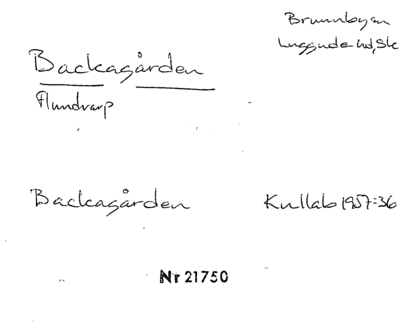 Brunnby sn
Luggude hd, Sk
Backagården
Flundrarp
Backagården Kullab 1957:36
Nr 21750